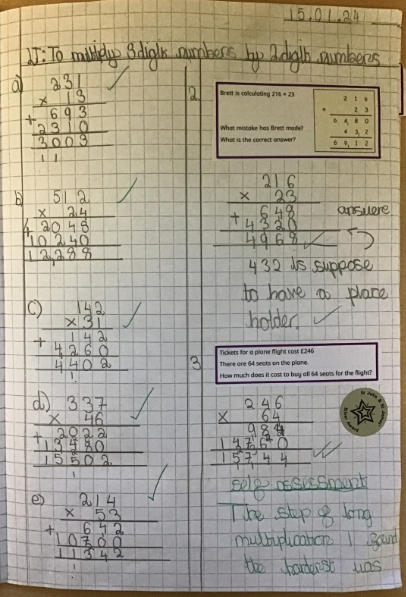 15.01.24
LI: To multiply 3 digit numbers by 2 digit numbers
a) 231
x 13
693
+ 2310
3003
1 1
b) 512
x 24
2048
+ 10240
12,288
c) 142
x 31
142
+ 4260
4402
1
d) 337
x 46
2022
+ 13480
15502
1
e) 214
x 53
642
+ 10700
11342
1
2
Brett is calculating 216 × 23
What mistake has Brett made?
What is the correct answer?
2 1 6
× 2 3
6 4 8 0
4 3 2
6 9 1 2
216
x 23
648
+ 4320
4968
answere
432 is suppose
to have a place
holder.
3
Tickets for a plane flight cost £246
There are 64 seats on the plane.
How much does it cost to buy all 64 seats for the flight?
246
x 64
984
14760
15744
self assessment
The step of long
multiplication I found
the hardest was